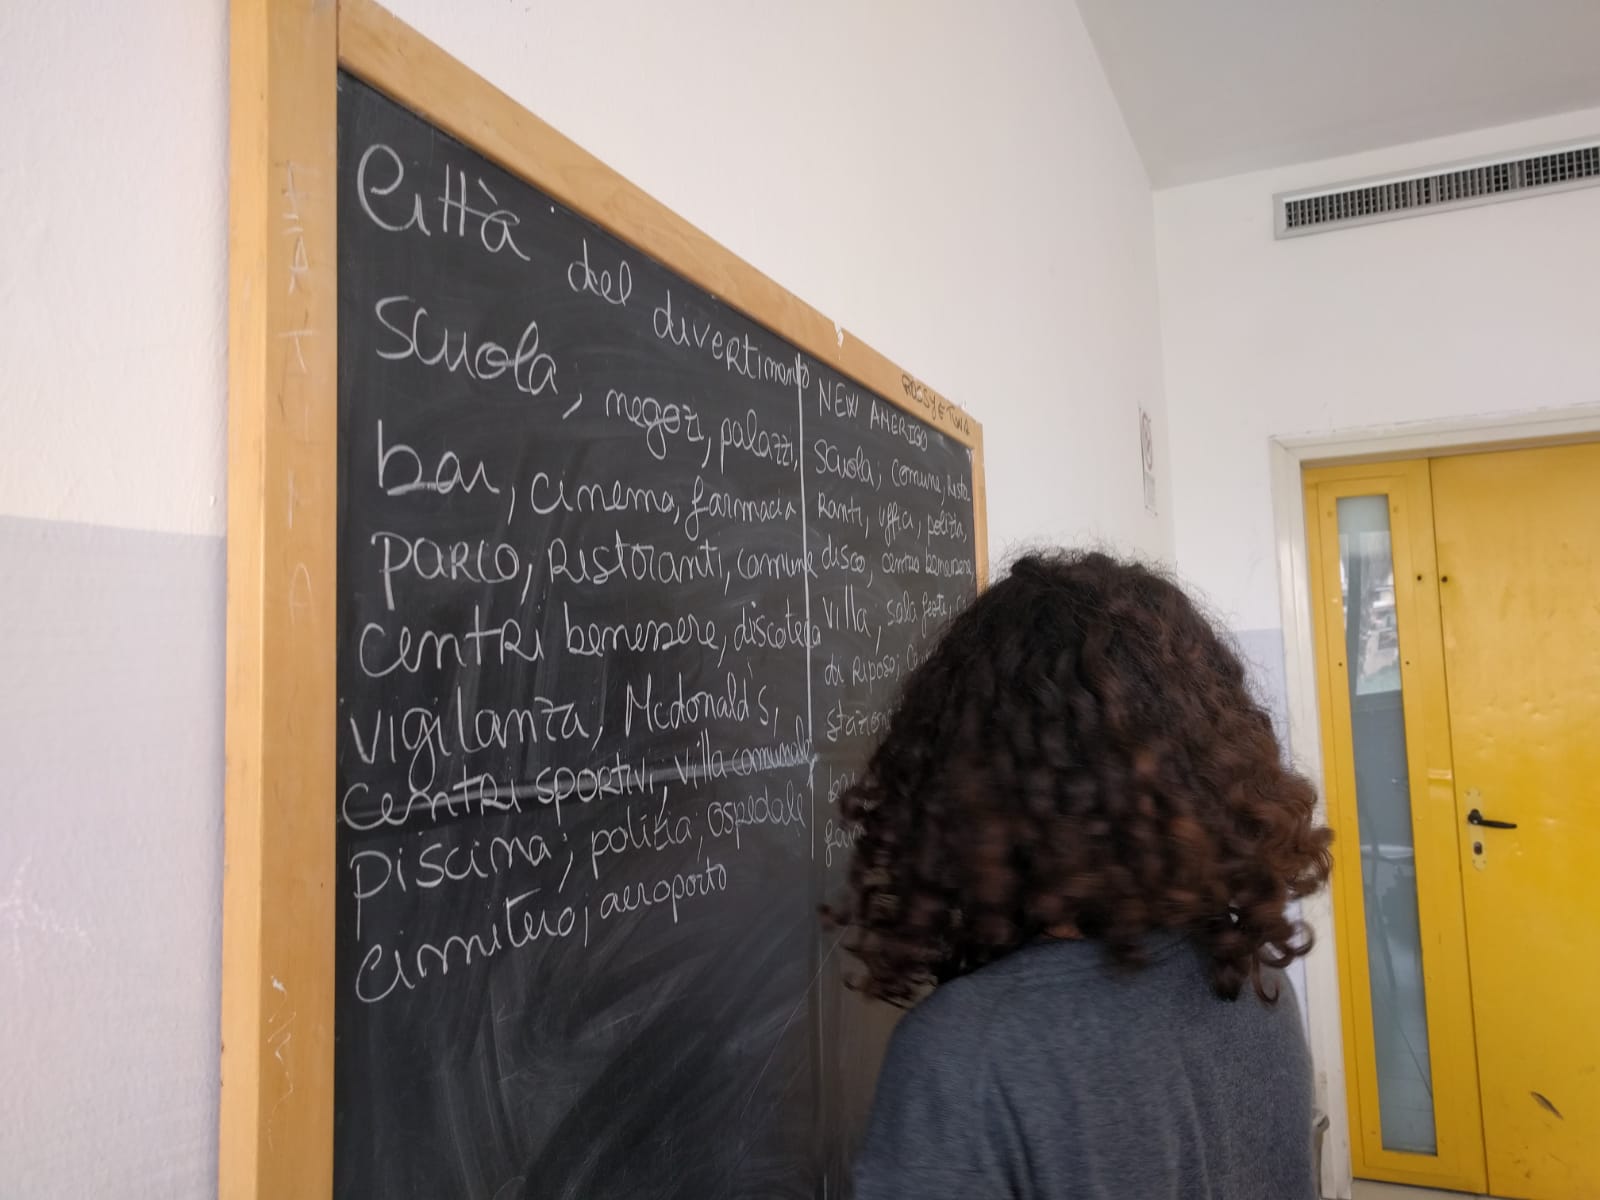 Città del divertimento
scuola, negozi, palazzi,
bar, cinema, farmacia
parco, Ristoranti, comune
centri benessere, discoteca
vigilanza, Mcdonald's,
centri sportivi, villa comunale
piscina; polizia; ospedale
cimitero; aeroporto
NEW AMERIGO
scuola; comune, Risto-
Ranti, uffici, polizia,
disco, centro benessere,
villa; sala feste,
di Riposo;
ROSSY E